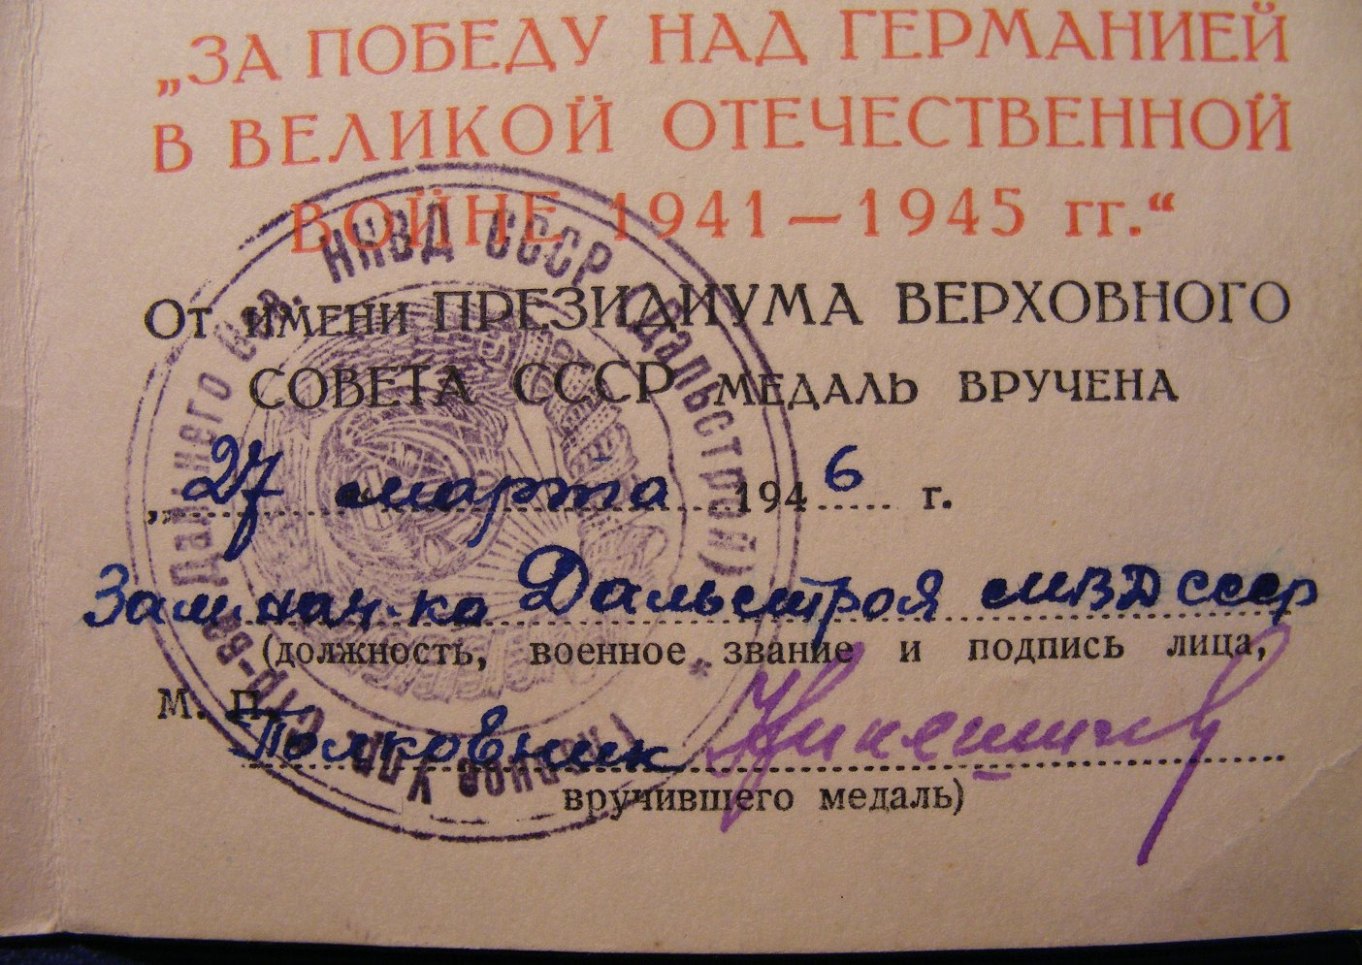 „ЗА ПОБЕДУ НАД ГЕРМАНИЕЙ
В ВЕЛИКОЙ ОТЕЧЕСТВЕННОЙ
ВОЙНЕ 1941—1945 гг.“
От имени ПРЕЗИДИУМА ВЕРХОВНОГО
СОВЕТА СССР медаль вручена
„27 марта 1946 г.
Зам нач-ка Дальстроя МВД СССР
(должность, военное звание и подпись лица,
М. П.
Полковник Никишов
вручившего медаль)
Главное Упр. Стр-ва Дальнего Сев. НКВД СССР (Дальстрой) *